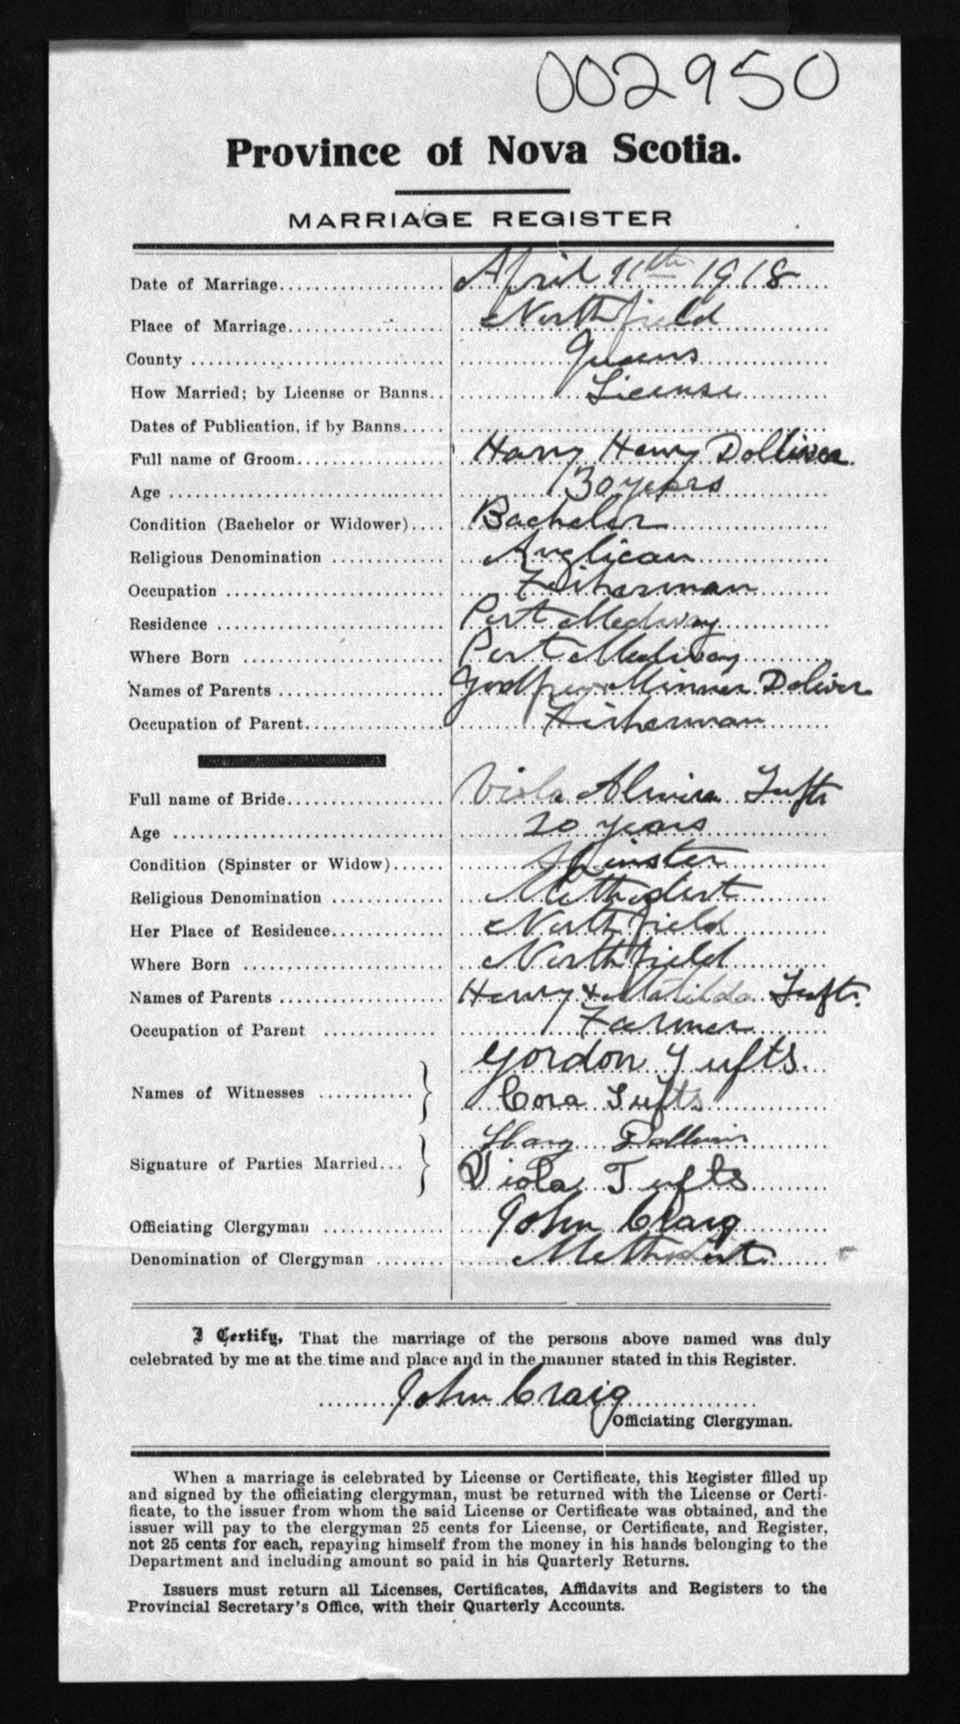 002950
Province of Nova Scotia.
MARRIAGE REGISTER
Date of Marriage.................. April 11th 1918
Place of Marriage.................. Northfield
County .................. Queens
How Married; by License or Banns.. License
Dates of Publication, if by Banns.....
Full name of Groom.................. Harry Henry Dolliver
Age .................. 30 years
Condition (Bachelor or Widower).... Bachelor
Religious Denomination .................. Anglican
Occupation .................. Fisherman
Residence .................. Port Medway
Where Born .................. Port Medway
Names of Parents .................. Godfrey + Minnie Doliver
Occupation of Parent.................. Fisherman
Full name of Bride.................. Viola Almira Tufts
Age .................. 20 years
Condition (Spinster or Widow)...... Spinster
Religious Denomination .................. Methodist
Her Place of Residence............. Northfield
Where Born .................. Northfield
Names of Parents .................. Henry + Matilda Tufts.
Occupation of Parent ............ Farmer
Gordon Tufts.
Names of Witnesses ............
Cora Tufts
Harry
Signature of Parties Married...
Viola Tufts
Officiating Clergyman ............ John Craig
Denomination of Clergyman ........ Methodist
I Certify, That the marriage of the persons above named was duly
celebrated by me at the time and place and in the manner stated in this Register.
John Craig
Officiating Clergyman.
When a marriage is celebrated by License or Certificate, this Register filled up
and signed by the officiating clergyman, must be returned with the License or Certi-
ficate, to the issuer from whom the said License or Certificate was obtained, and the
issuer will pay to the clergyman 25 cents for License, or Certificate, and Register,
not 25 cents for each, repaying himself from the money in his hands belonging to the
Department and including amount so paid in his Quarterly Returns.
Issuers must return all Licenses, Certificates, Affidavits and Registers to the
Provincial Secretary's Office, with their Quarterly Accounts.